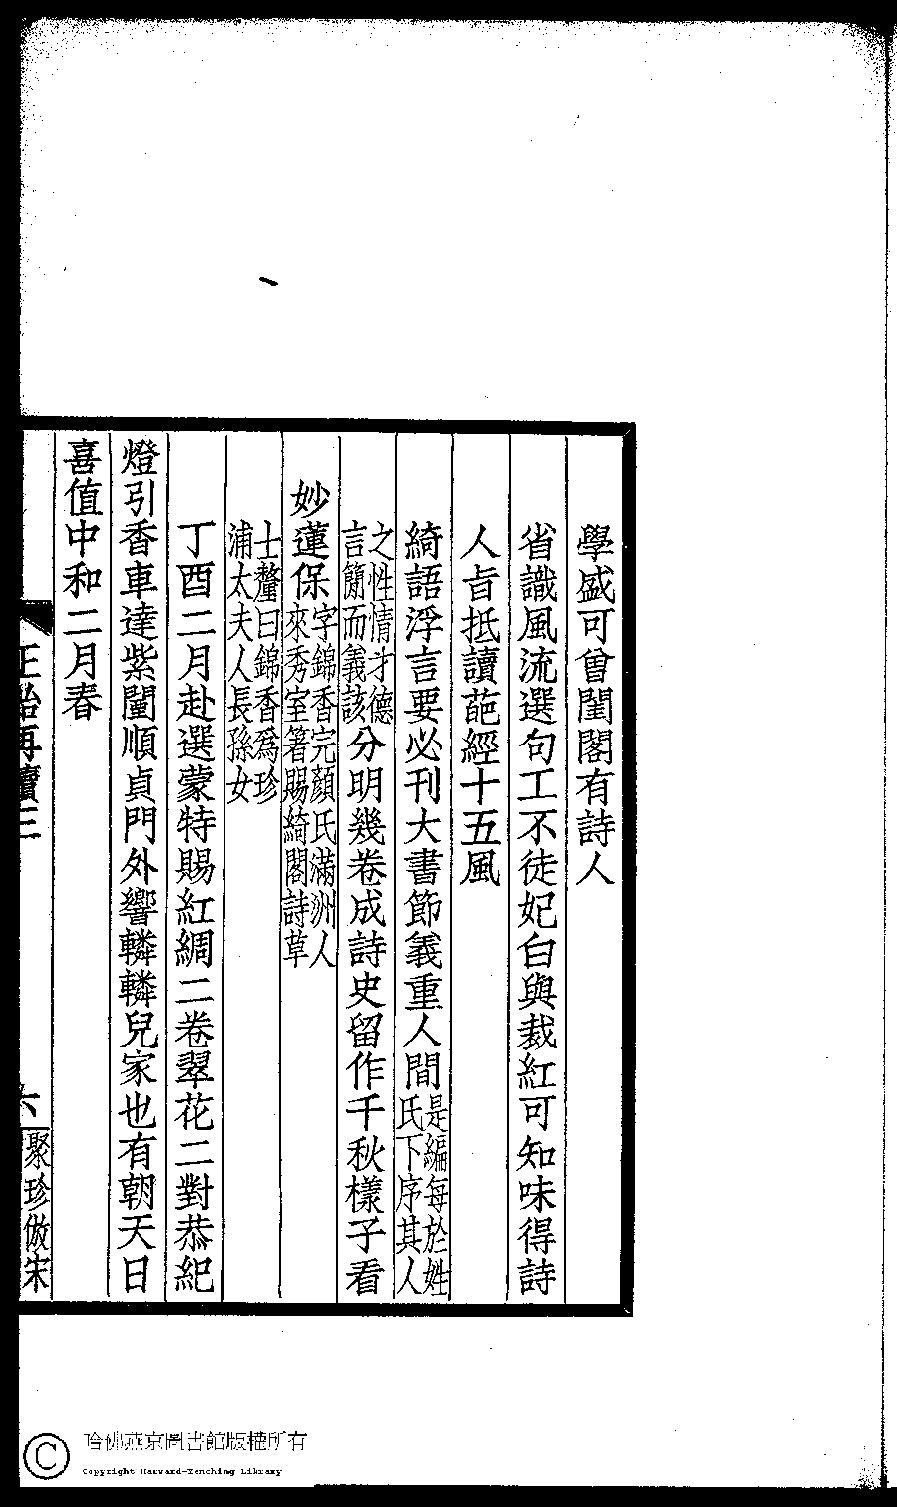 學盛可曾閨閣有詩人
省識風流選句工不徒妃白與裁紅可知味得詩
人旨抵讀葩經十五風
綺語浮言要必刊大書節義重人間是編每於姓
氏下序其人
之性情才德
言簡而義該分明幾卷成詩史留作千秋樣子看
妙蓮保字錦香完顏氏滿洲人
來秀室箸賜綺閣詩草
士釐曰錦香爲珍
浦太夫人長孫女
丁酉二月赴選蒙特賜紅綢二卷翠花二對恭紀
燈引香車達紫闈順貞門外響轔轔兒家也有朝天日
喜值中和二月春
正始再續三
六
聚珍倣宋
哈佛燕京圖書館版權所有
Copyright Harvard-Yenching Library